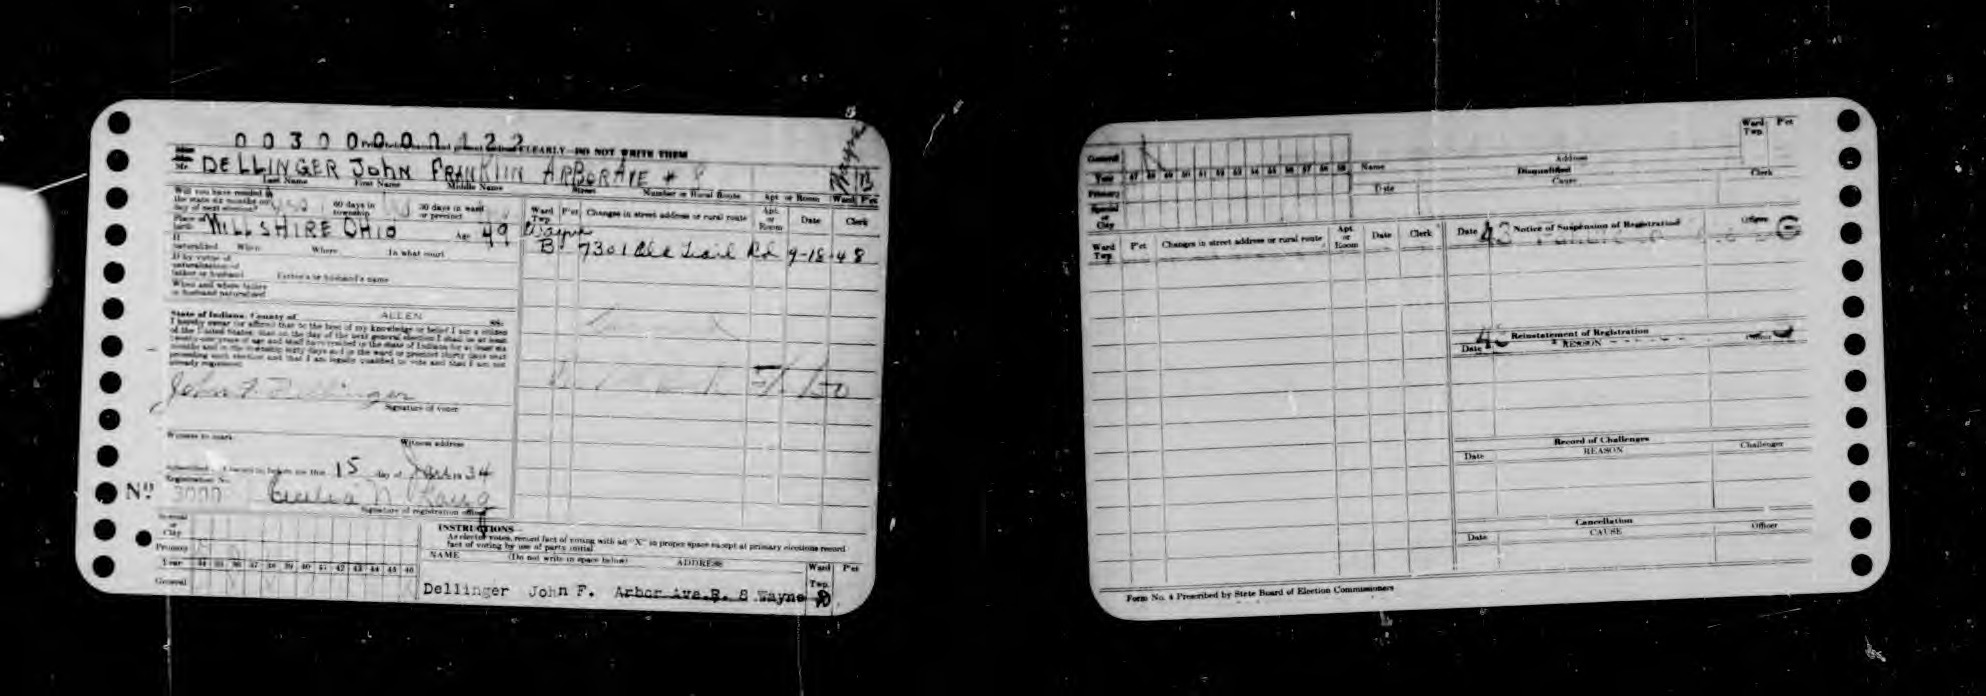 0 0 3 0 0 0 0 0 1 2 2 CLEARLY—DO NOT WRITE THEM
Mr. DELLINGER John FRANKlIN ARBOR AVE # 8 Wayne B
Last Name First Name Middle Name Street Number or Rural Route Apt. or Room Ward P'ct
Will you have resided in
the state six months on
day of next election? 60 days in township 30 days in ward or precinct
Place of birth WILLSHIRE OHIO Age 49
If naturalized When Where In what court
If by virtue of
naturalization of
father or husband Father's or husband's name
When and where father
or husband naturalized
State of Indiana, County of ALLEN ss:
I hereby swear (or affirm) that to the best of my knowledge or belief I am a citizen
of the United States; that on the day of the next general election I shall be at least
twenty-one years of age and shall have resided in the state of Indiana for at least six
months and in the township sixty days and in the ward or precinct thirty days next
preceding such election and that I am legally qualified to vote and that I am not
already registered.
John F. Dellinger
Signature of voter
Witness to mark Witness address
Subscribed and sworn to before me this 15 day of 1934
Registration No.
No. 3000 Cecilia N.
Signature of registration officer
Special
or
City
Primary
Year 34 35 36 37 38 39 40 41 42 43 44 45 46
General
Ward Twp. P'ct Changes in street address or rural route Apt. or Room Date Clerk
Wayne
B 7301 Old Trail Rd 9-18-48
INSTRUCTIONS
As elector votes, record fact of voting with an "X" in proper space except at primary elections record
fact of voting by use of party initial.
NAME (Do not write in space below) ADDRESS Ward Twp. P'ct
Dellinger John F. Arbor Ave.R. 8 Wayne B
General
Year 47 48 49 50 51 52 53 54 55 56 57 58 59
Primary
Special
or
City
Name Address Ward Twp. P'ct
Disqualified
Date Cause Clerk
Ward Twp. P'ct Changes in street address or rural route Apt. or Room Date Clerk
Date Notice of Suspension of Registration Officer
Reinstatement of Registration
Date REASON Officer
Record of Challenges
Date REASON Challenger
Cancellation
Date CAUSE Officer
Form No. 4 Prescribed by State Board of Election Commissioners